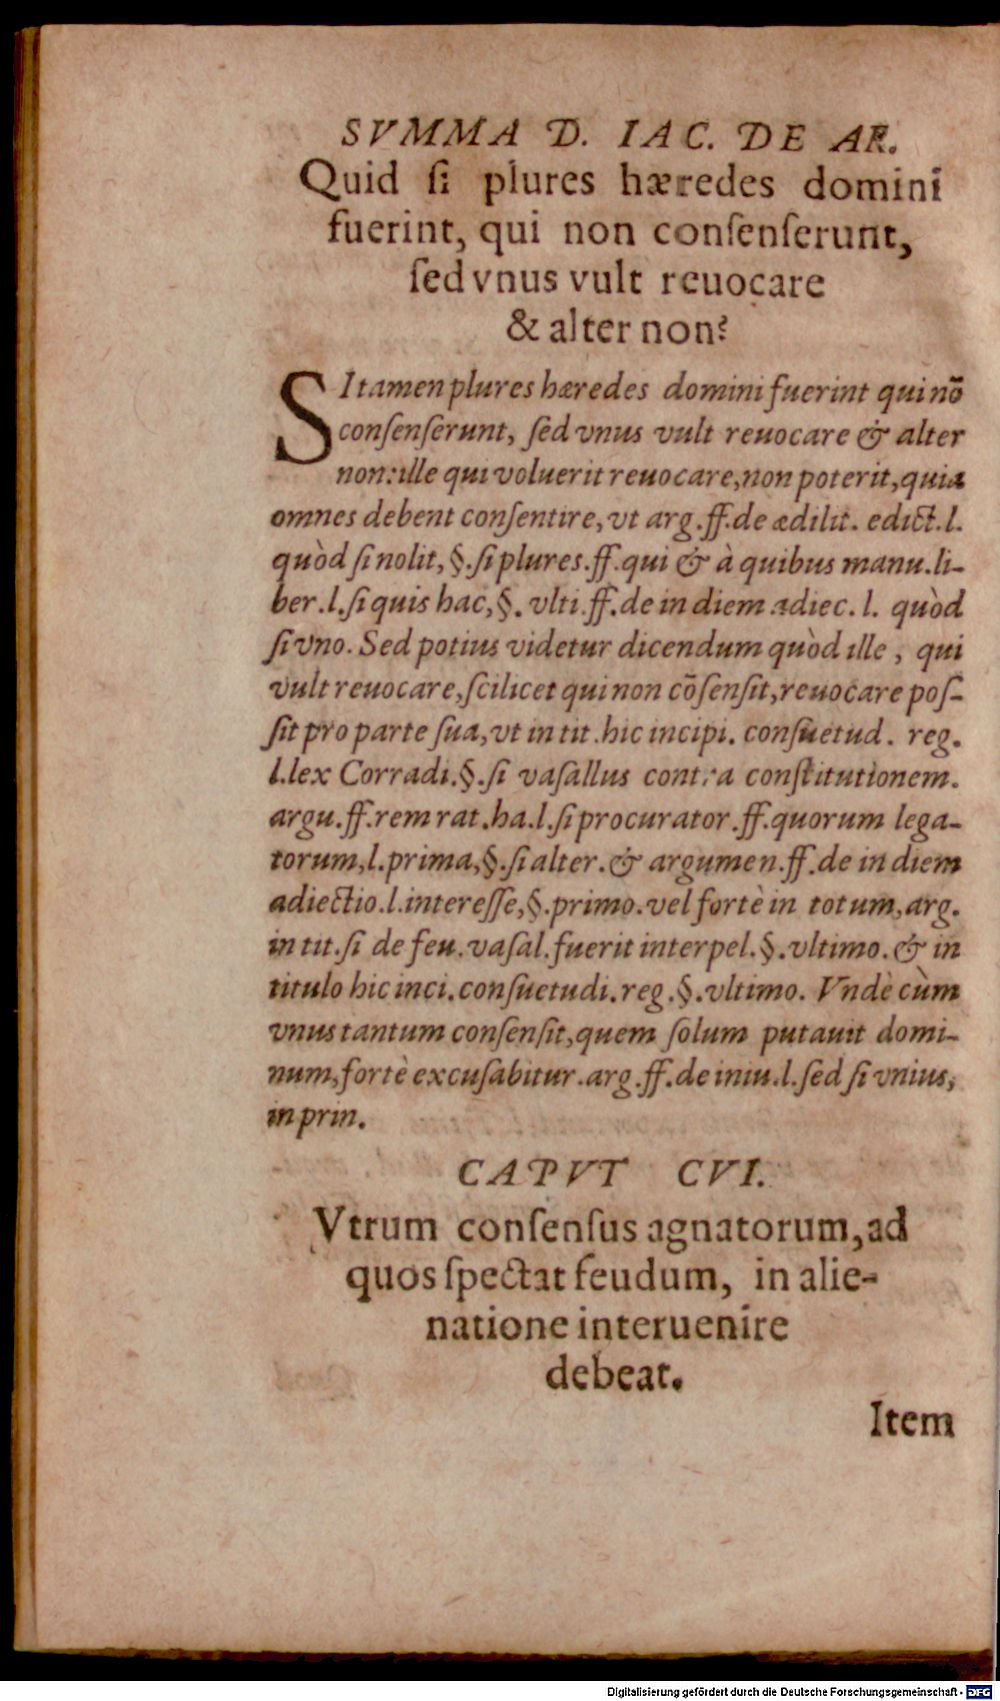 SVMMA D. IAC. DE AR.
Quid ſi plures hæredes domini
fuerint, qui non conſenſerunt,
ſed vnus vult reuocare
& alter non?
SI tamen plures hæredes domini fuerint qui nõ
conſenſerunt, ſed vnus vult reuocare & alter
non: ille qui voluerit reuocare, non poterit, quia
omnes debent conſentire, vt arg. ff. de ædilit. edict. l.
quòd ſi nolit, §. ſi plures. ff. qui & à quibus manu. li-
ber. l. ſi quis hac, §. vlti. ff. de in diem adiec. l. quòd
ſi vno. Sed potius videtur dicendum quòd ille, qui
vult reuocare, ſcilicet qui non cõſenſit, reuocare poſ-
ſit pro parte ſua, vt in tit. hic incipi. conſuetud. reg.
l. lex Corradi. §. ſi vaſallus contra conſtitutionem.
argu. ff. rem rat. ha. l. ſi procurator. ff. quorum lega-
torum, l. prima, §. ſi alter. & argumen. ff. de in diem
adiectio. l. intereſſe, §. primo. vel fortè in totum, arg.
in tit. ſi de feu. vaſal. fuerit interpel. §. vltimo. & in
titulo hic inci. conſuetudi. reg. §. vltimo. Vndè cùm
vnus tantum conſenſit, quem ſolum putauit domi-
num, fortè excuſabitur. arg. ff. de iniu. l. ſed ſi vnius,
in prin.
CAPVT CVI.
Vtrum conſenſus agnatorum, ad
quos ſpectat feudum, in alie-
natione interuenire
debeat.
Item
Digitalisierung gefördert durch die Deutsche Forschungsgemeinschaft - DFG